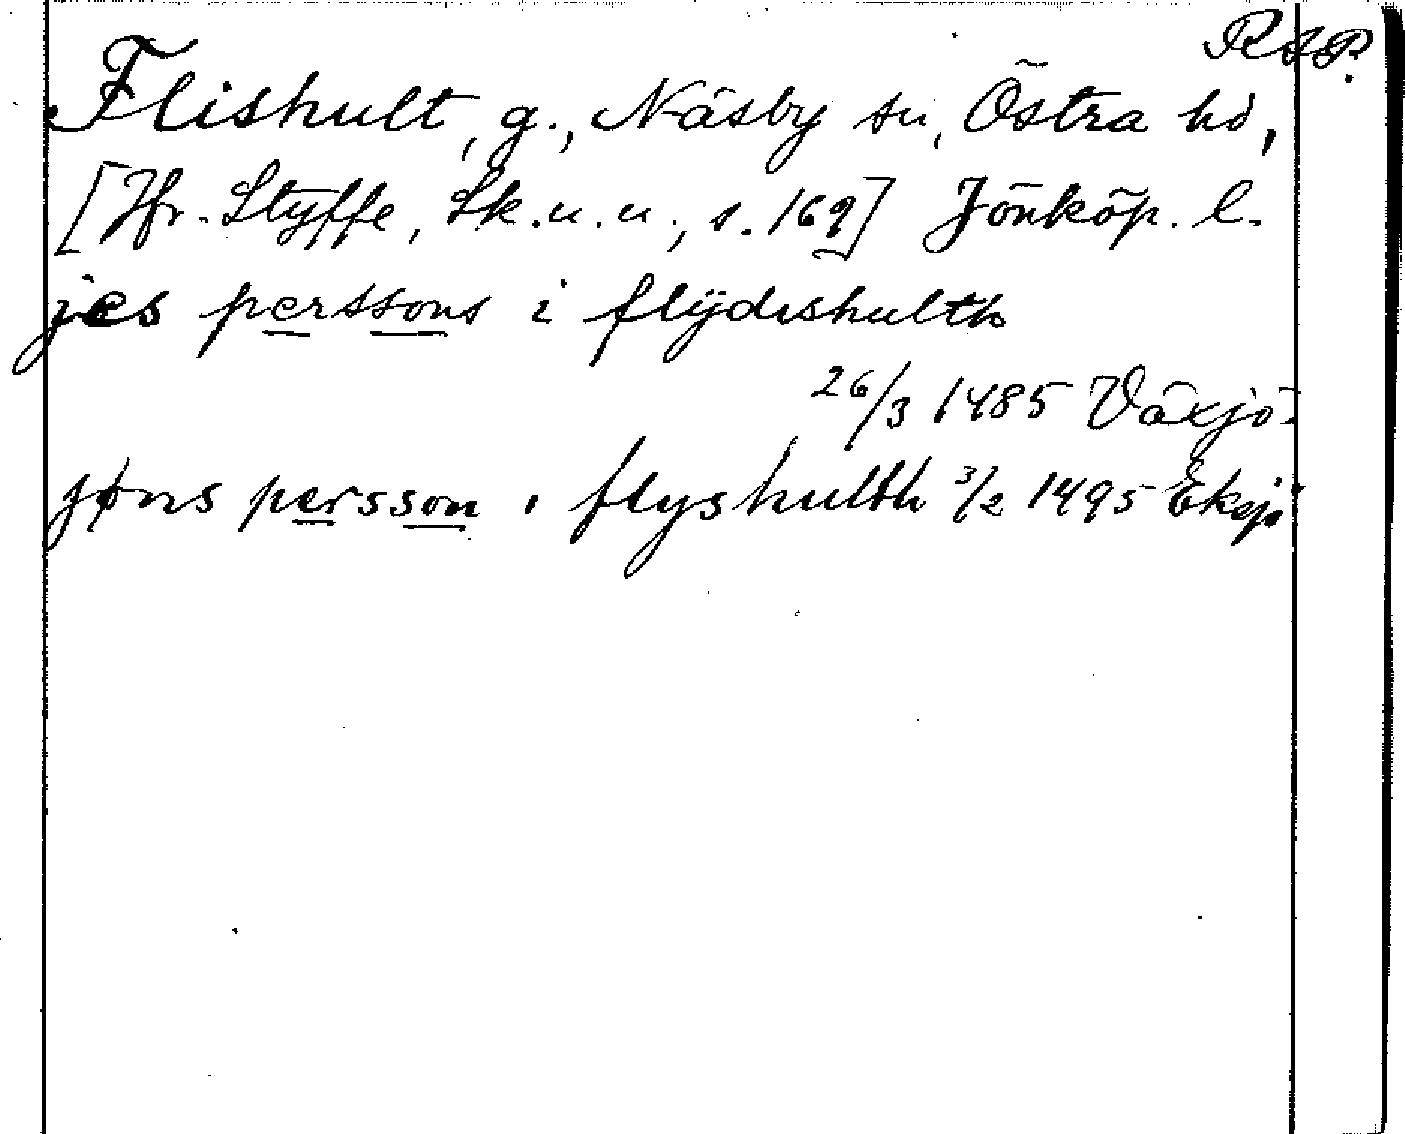 RAP.
Flishult, g., Näsby sn, Östra hd,
[Jfr. Styffe, Sk.u.u., s. 169] Jönköp. l.
jes perssons i flÿdishulth
26/3 1485 Växjö.
jøns persson i flyshulth 3/2 1495 Eksjö